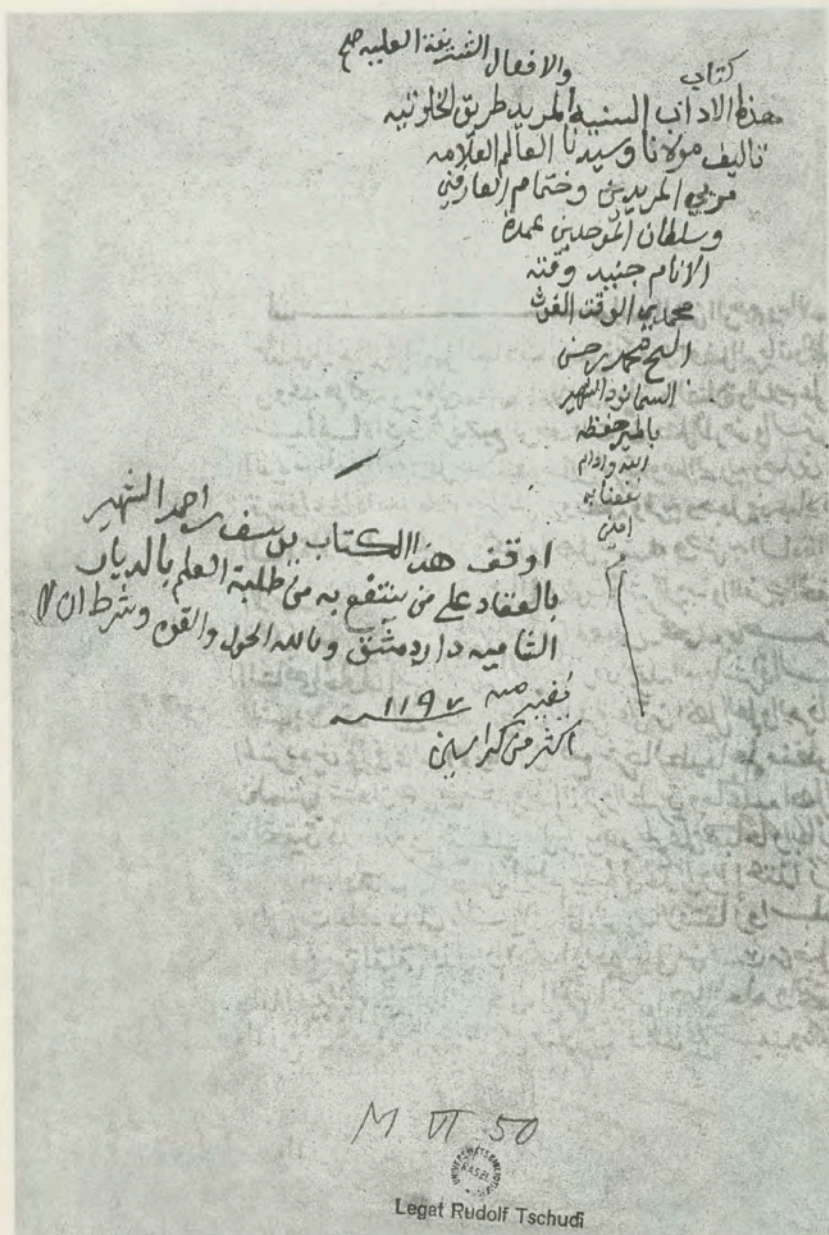 والافعال الشريفة العليه صح
كتاب
هذا الاداب السنية المريد طريق الخلوتيه
تاليف مولانا وسيدنا العالم العلامه
مربي المريدين وختام العارفين
وسلطان الموحدين عمدة
الانام جنيد وقته
محمد بن حسن
السمانود الشهير
بالمنير حفظه
الله وادام
نفعنا به
امين
اوقف هذا الكتاب يوسف احمد الشهير
بالعقاد على من ينتفع به من طلبة العلم بالديار
الشاميه دار دمشق وبالله الحول والقوه وشرط ان لا
يغير منه ١١٩٧
اكثر من كراسين
M VI 50
UNIVERSITÄTSBIBLIOTHEK BASEL
Legat Rudolf Tschudi